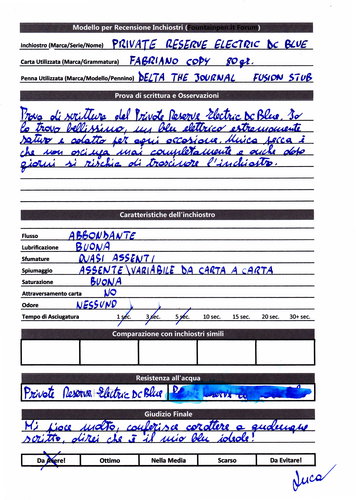 Modello per Recensione Inchiostri (Fountainpen.it Forum)
Inchiostro (Marca/Serie/Nome) PRIVATE RESERVE ELECTRIC DC BLUE
Carta Utilizzata (Marca/Grammatura) FABRIANO COPY 80gr.
Penna Utilizzata (Marca/Modello/Pennino) DELTA THE JOURNAL FUSION STUB
Prova di scrittura e Osservazioni
Prova di scrittura del Private Reserve Electric Dc Blue. Io
lo trovo bellissimo, un blu elettrico estremamente
saturo e adatto per ogni occasione. Unica pecca è
che non asciuga mai completamente e anche dopo
giorni si rischia di trascinare l'inchiostro.
Caratteristiche dell'inchiostro
Flusso ABBONDANTE
Lubrificazione BUONA
Sfumature QUASI ASSENTI
Spiumaggio ASSENTE\VARIABILE DA CARTA A CARTA
Saturazione BUONA
Attraversamento carta NO
Odore NESSUNO
Tempo di Asciugatura 1 sec. 3 sec. 5 sec. 10 sec. 15 sec. 20 sec. 30+ sec.
Comparazione con inchiostri simili
Resistenza all'acqua
Private Reserve Electric Dc Blue Reserve Electric Dc Blue
Giudizio Finale
Mi piace molto, conferisce carattere a qualunque
scritto, direi che è il mio blu ideale!
Da Avere! Ottimo Nella Media Scarso Da Evitare!
Luca